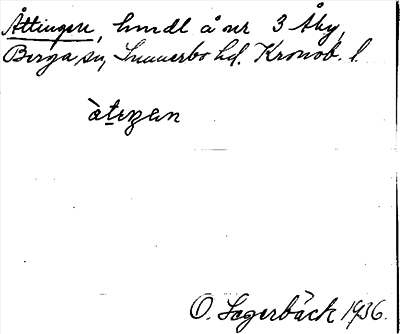 Åttingen, hmdl å nr 3 Åby,
Berga sn, Sunnerbo hd. Kronob. l.
àtεŋən
O. Lagerbäck 1936.